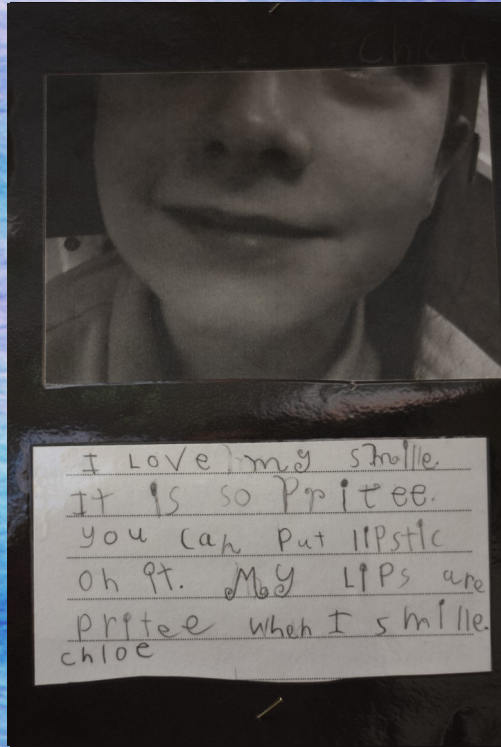 Chloe
I LOVE my smille.
It is so Ppritee.
you can put lipstic
on it. My LIPS are
pritee when I smille.
chloe